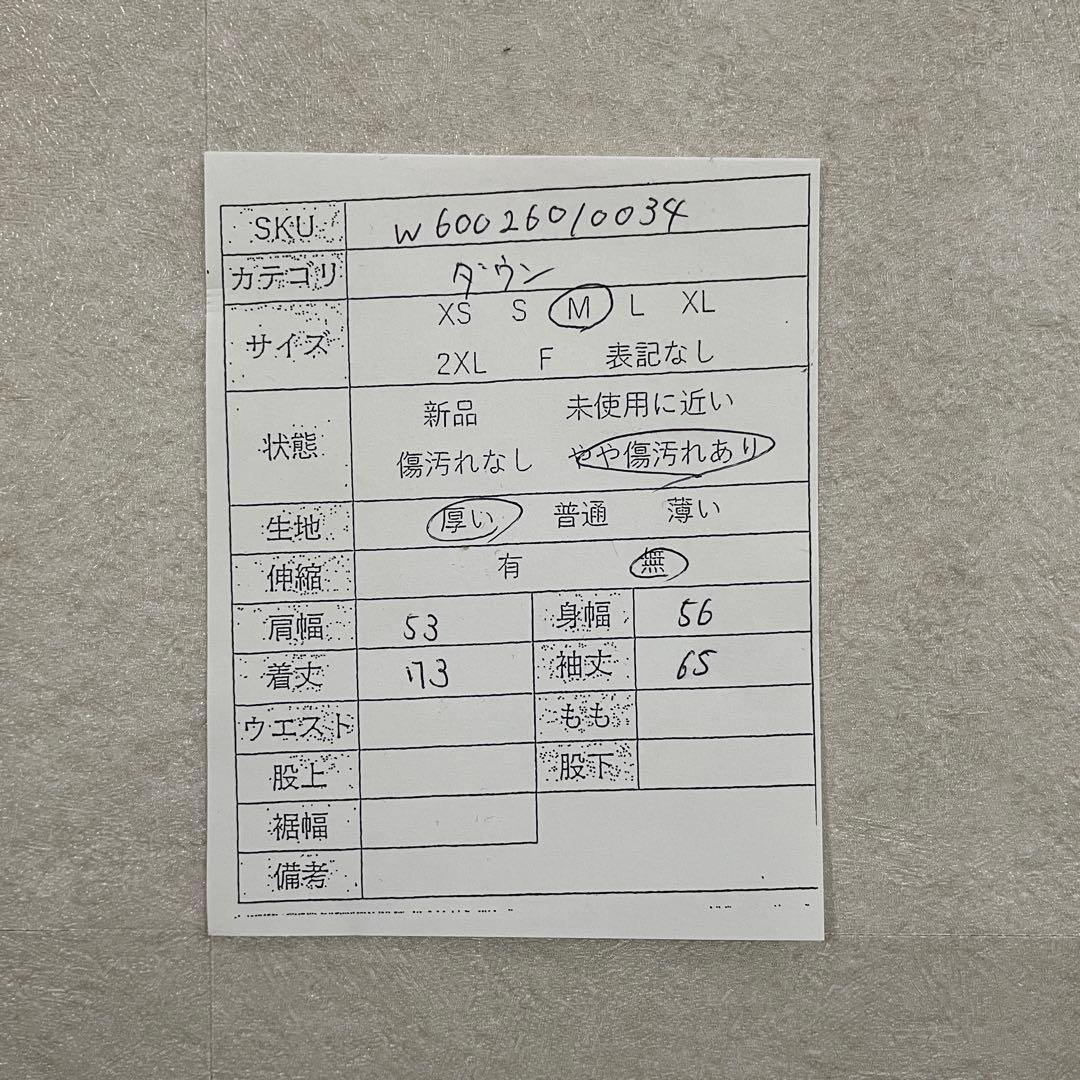 SKU W60026010034
カテゴリ ダウン
サイズ XS S M L XL
2XL F 表記なし
状態 新品 未使用に近い
傷汚れなし やや傷汚れあり
生地 厚い 普通 薄い
伸縮 有 無
肩幅 53 身幅 56
着丈 73 袖丈 65
ウエスト もも
股上 股下
裾幅
備考